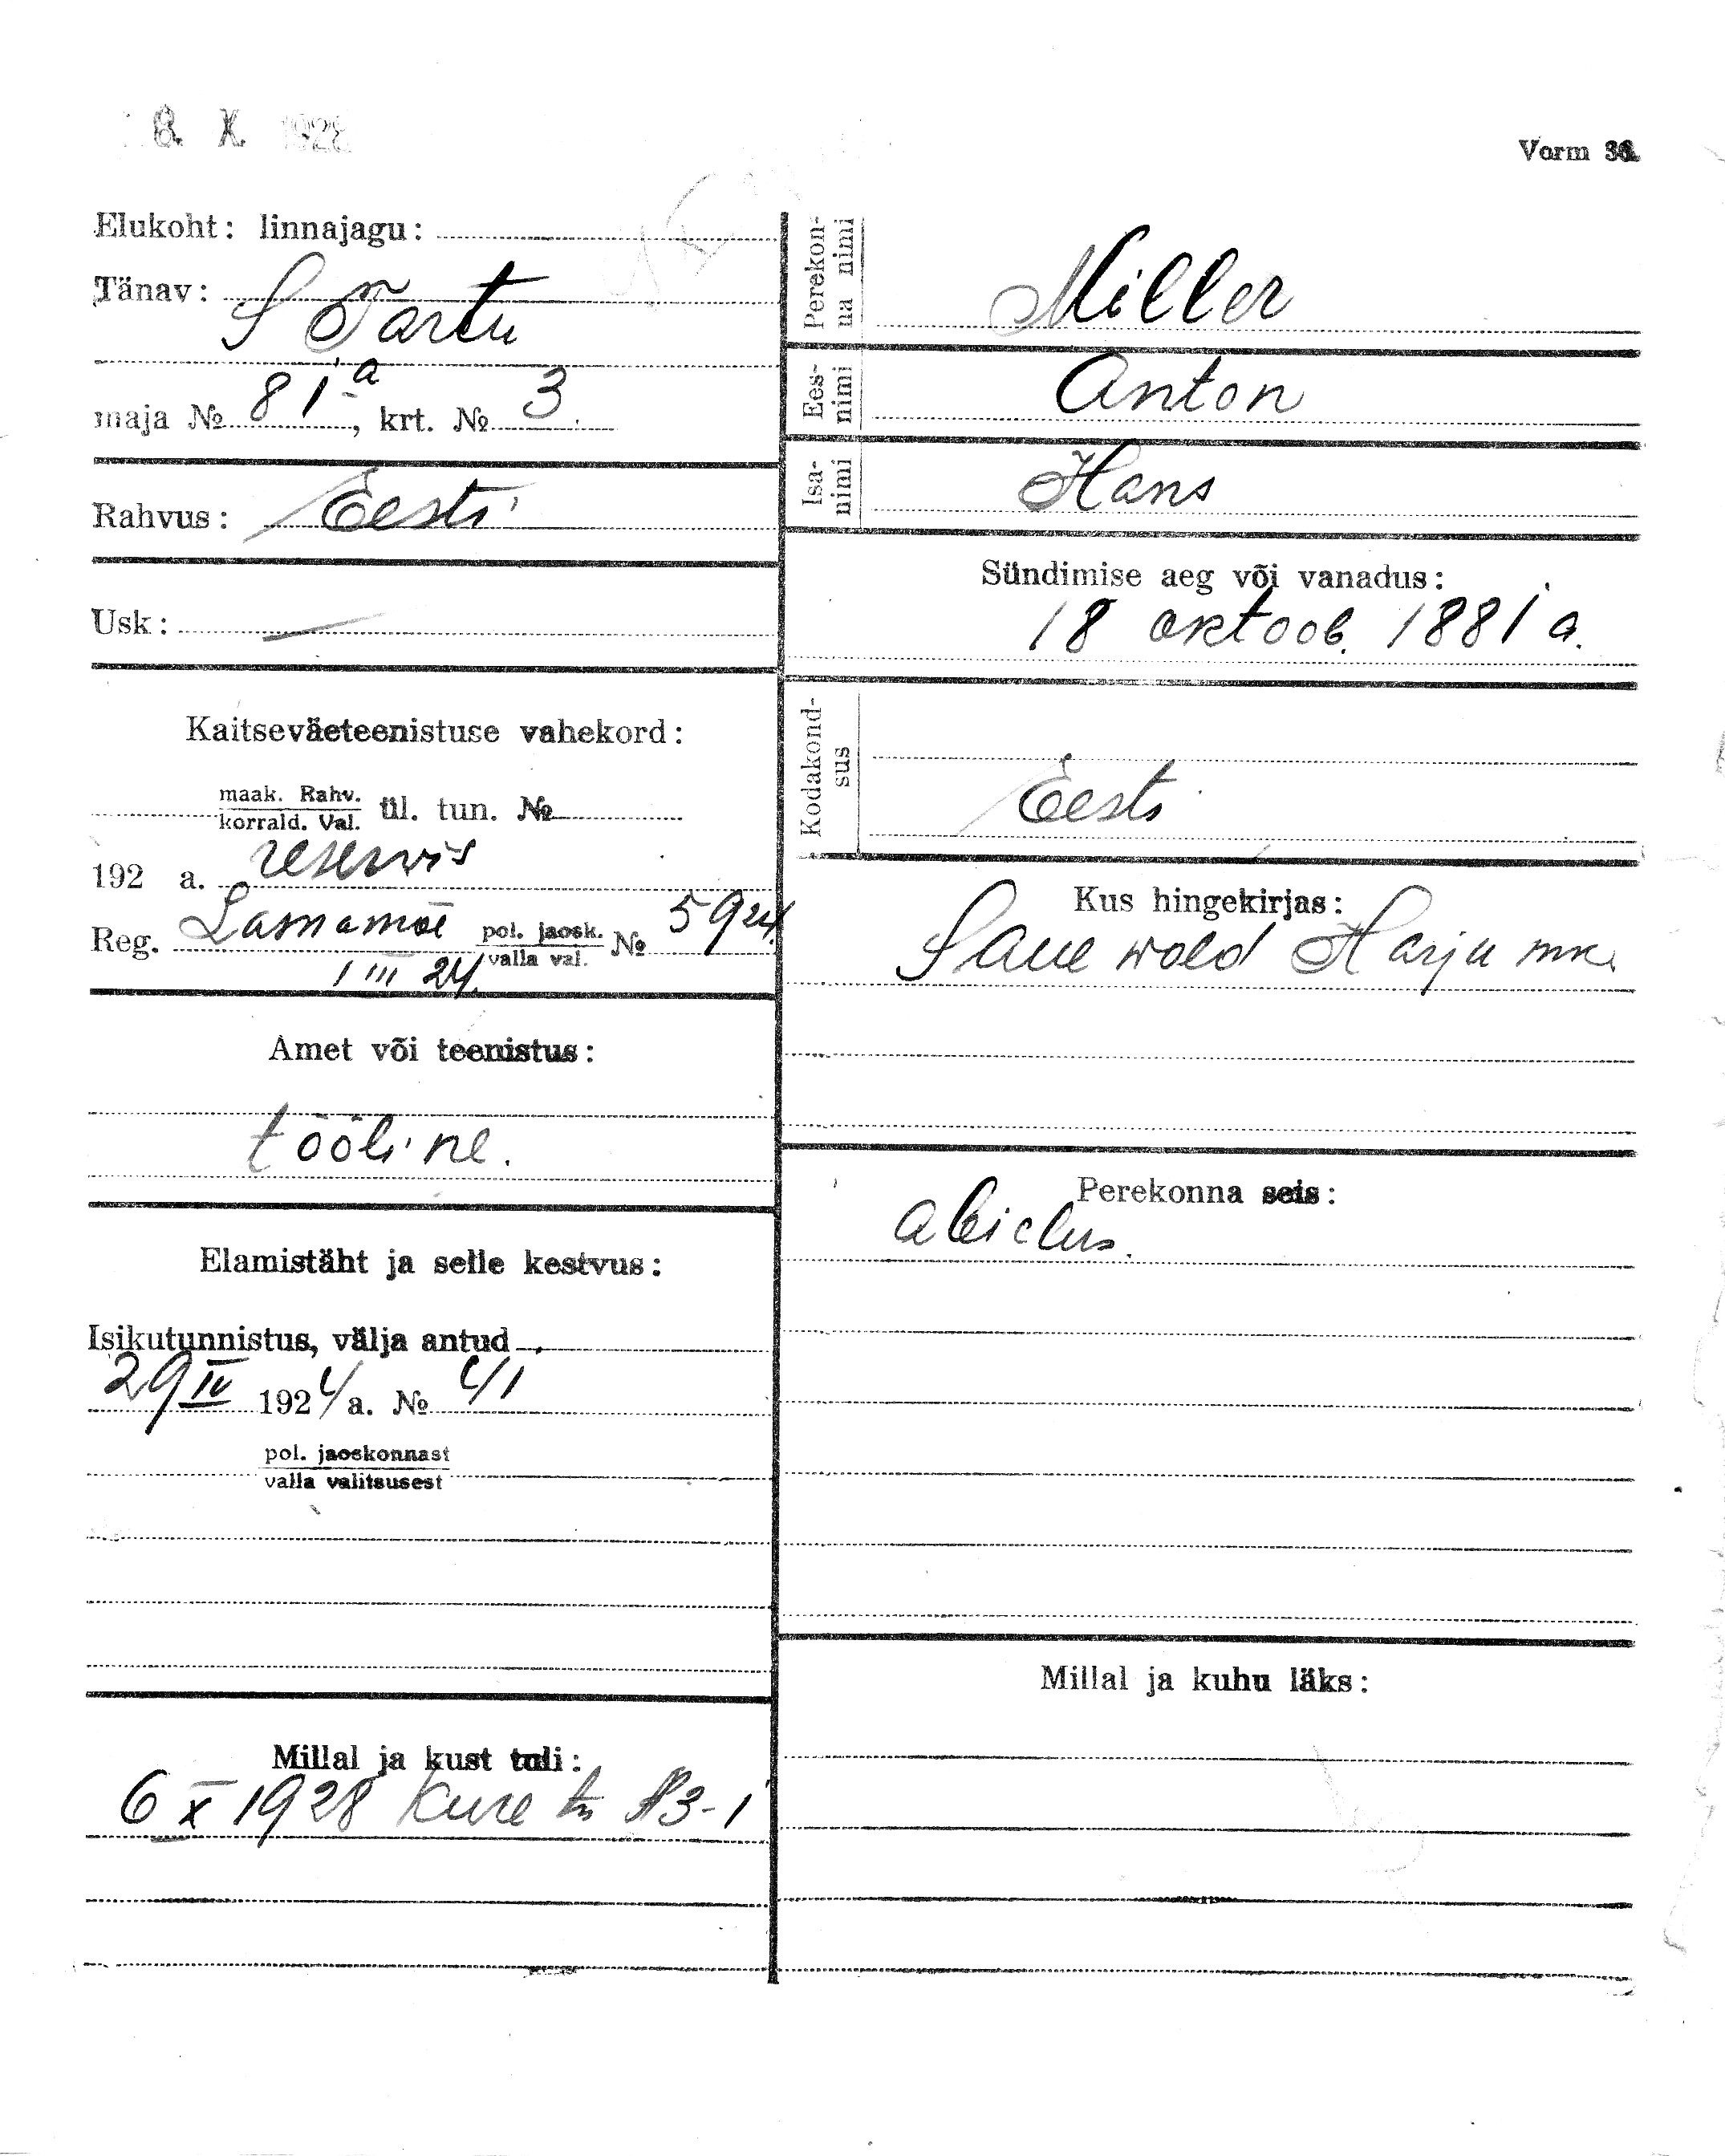 8. X. 1928
Vorm 36.
Elukoht: linnajagu:
Tänav: S Tartu
maja № 81a, krt. № 3.
Rahvus: Eesti
Usk: —
Kaitseväeteenistuse vahekord:
maak. Rahv.
korrald. Val. ül. tun. №
192 a. reservis
Reg. Lasnamäe pol. jaosk. № 5924.
valla val.
1 III 24.
Amet või teenistus:
tööline.
Elamistäht ja selle kestvus:
Isikutunnistus, välja antud
29 IV 1924 a. № 41
pol. jaoskonnast
valla valitsusest
Millal ja kust tuli:
6 X 1928 Kure tn 13-1
Perekonna nimi Miller
Eesnimi Anton
Isanimi Hans
Sündimise aeg või vanadus:
18 oktoob. 1881 a.
Kodakondsus Eesti
Kus hingekirjas:
Saue wald Harju mk.
Perekonna seis:
abielus.
Millal ja kuhu läks: